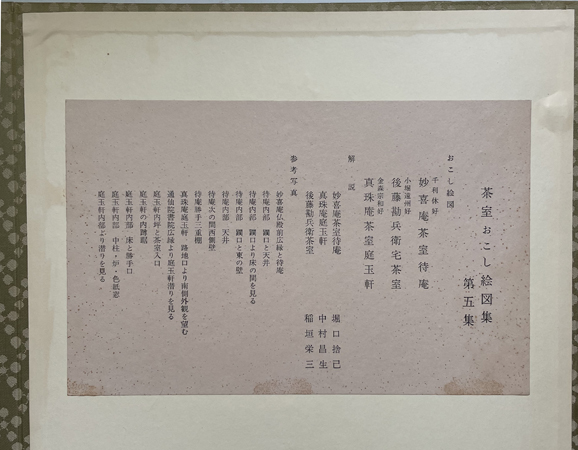 茶室おこし絵図集
第五集
おこし絵図
千利休好
妙喜庵茶室待庵
小堀遠州好
後藤勘兵衛宅茶室
金森宗和好
真珠庵茶室庭玉軒
解説
妙喜庵茶室待庵 堀口捨己
真珠庵庭玉軒 中村昌生
後藤勘兵衛茶室 稲垣栄三
参考写真
妙喜庵仏殿前広縁と待庵
待庵内部 躙口と天井
待庵内部 躙口より床の間を見る
待庵内部 躙口と東の壁
待庵内部 天井
待庵次の間西側壁
待庵勝手三重棚
真珠庵庭玉軒 路地口より南側外観を望む
通仙院書院広縁より庭玉軒潜りを見る
庭玉軒内坪と茶室入口
庭玉軒の内蹲踞
庭玉軒内部 床と勝手口
庭玉軒内部 中柱・炉・色紙窓
庭玉軒内部より潜りを見る